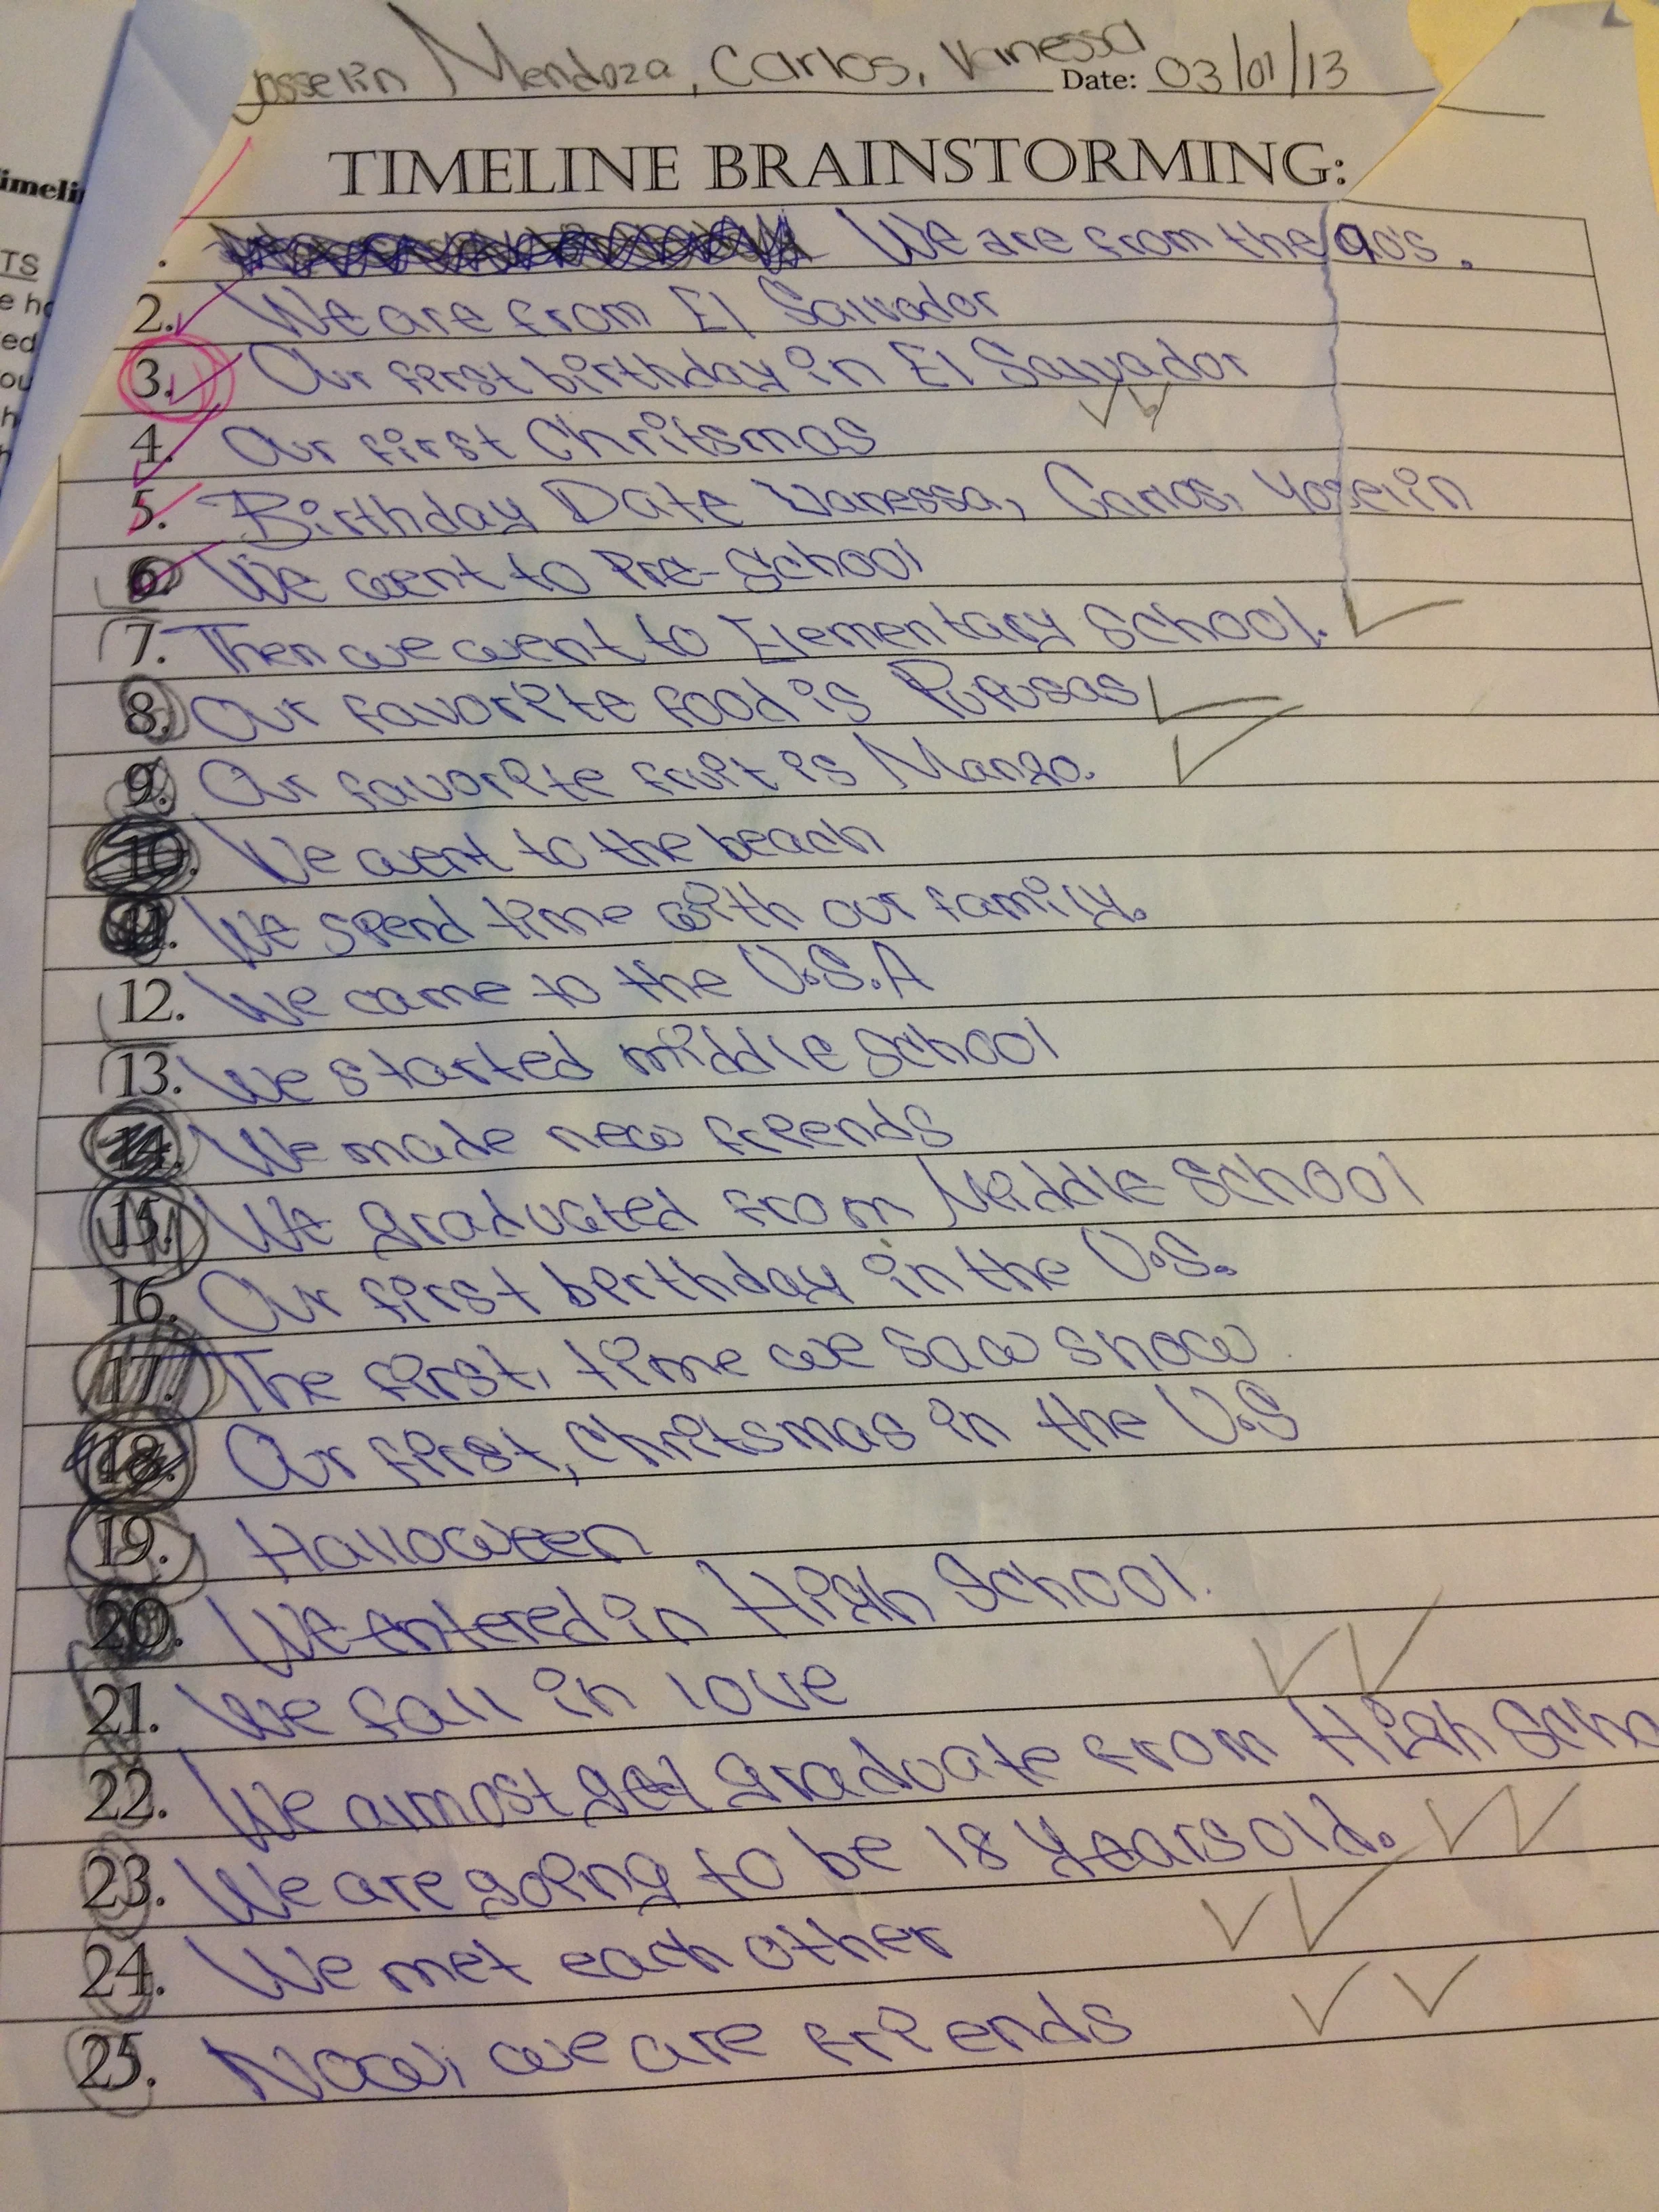 Yosselin Mendoza, Carlos, Vanessa Date: 03/01/13
TIMELINE BRAINSTORMING:
. We are from the 90's.
2. We are from El Salvador
3. Our first birthday in El Sallvador
4. Our first Chritsmas
5. Birthday Date Vanessa, Carlos, Yoselin
6. We went to Pre-School
7. Then we went to Elementary School.
8. Our favorite food is Pupusas
9. Our favorite fruit is Mango.
10. We went to the beach
11. We spend time with our family.
12. We came to the U.S.A
13. We started middle School
14. We made new friends
15. We graduated from Middle School
16. Our first birthday in the U.S.
17. The first, time we saw snow
18. Our first, Chritsmas in the U.S
19. Halloween
20. We entered in High School.
21. We fall in love
22. We almost get graduate from High Scho
23. We are going to be 18 years old.
24. We met each other
25. Now, we are friends
imeli
TS
e ho
ed
ou
h